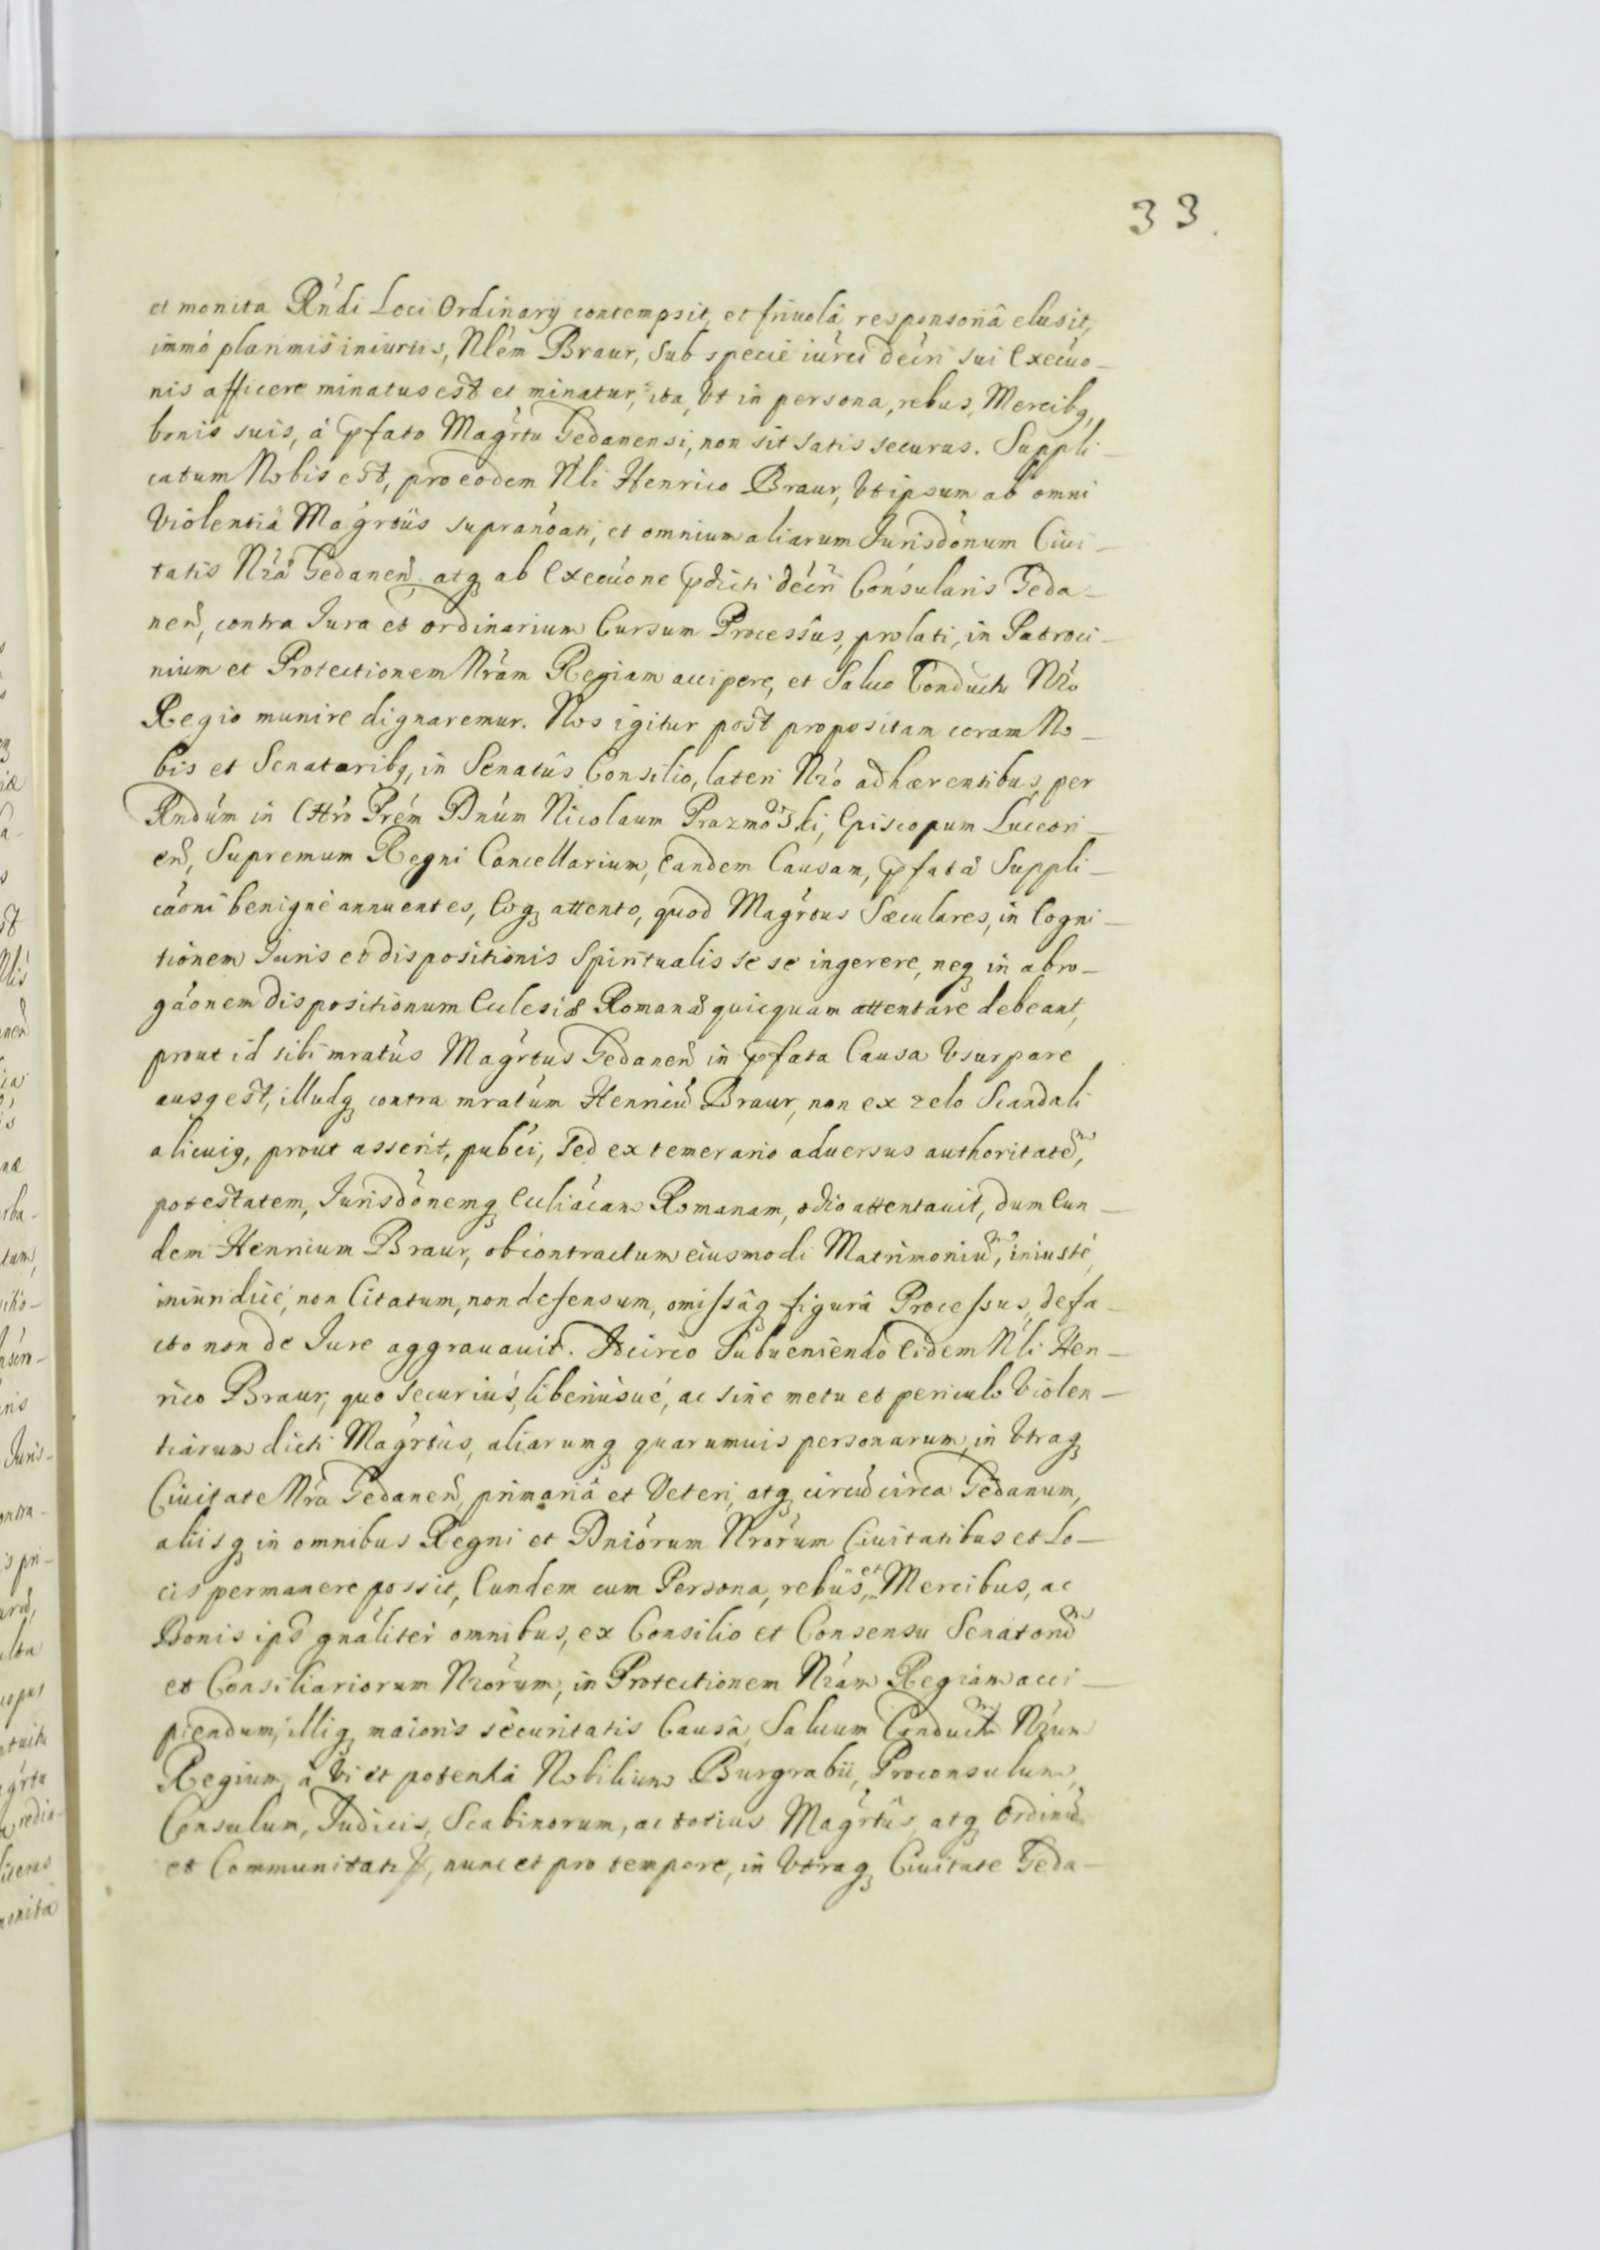 33.
et monita Rndi Loci Ordinarij contempsit, et friuolâ responsoriâ elusit,
immò plarimis iniurijs, Nlem Braur, sub specie decri sui Execuo-
nis afficere minatus est et minatur, ita, Vt in persona, rebus, Mercibq,
bonis suis, à pfato Magrtu Gedanensi, non sit satis securus. Suppli-
catum Nobis est, pro eodem Nli Henrico Braur, Vt ipsum ab omni
Violentiâ Magrtûs supranoati, et omnium aliarum Jurisdonum Ciui-
tatis Nrã Gedaneñ, atq ab Execuone pdicti decri Consularis Geda-
neñ, contra Jura et ordinarium Cursum Processûs, prolati, in Patroci-
nium et Protectionem Nram Regiam accipere, et Saluo Conductu Nro
Regio munire dignaremur. Nos igitur post propositam coram No-
bis et Senatoribq, in Senatûs Consilio, lateri Nro adhærentibus, per
Rndum in Chro Prem Dnum Nicolaum Prazmowski, Episcopum Luceori-
eñ, Supremum Regni Cancellarium, eandem Causam, pfatã Suppli-
caoni benignè annuentes, Eoq attento, quod Magrtus Sæculares, in Cogni-
tionem Juris et dispositionis Spiritualis se se ingerere, neq in abro-
gaonem dispositionum Ecclesiæ Romanæ quicquam attentare debeant,
prout id sibi mratus Magrtus Gedaneñ in pfata Causa Vsurpare
ausq est, illudq contra mratum Henricũ Braur, non ex zelo Scandali
alicuiq, prout asserit, pubci, sed ex temerario aduersus authoritatẽ,
potestatem, Jurisdonemq Eccliacam Romanam, odio attentauit, dum Eun-
dem Henricum Braur, ob contractum eiusmodi Matrimoniũ, iniustè,
iniuridicè, non Citatum, non defensum, omissâq figurâ Processus, de fa-
cto non de Jure aggrauauit. Idcirco Subueniendo Eidem Nli Hen-
rico Braur, quo securiùs, liberiùsué, ac sine metu et periculo Violen-
tiarum dicti Magrtûs, aliarumq quarumuis personarum, in Vtraq
Ciuitate Nra Gedaneñ, primariâ et Veteri, atq circũcirca Gedanum,
aliisq in omnibus Regni et Dniorum Nrorum Ciuitatibus et Lo-
cis permanere possit, Eundem cum Persona, rebus, et Mercibus, ac
Bonis ips gnaliter omnibus, ex Consilio et Consensu Senatorũ
et Consiliariorum Nrorum, in Protectionem Nram Regiam acci-
piendum, illiq maioris securitatis Causâ, Saluum Conductũ Nrum
Regium, à Vi et potentiâ Nobilium Burgrabii, Proconsulum,
Consulum, Judicis, Scabinorum, ac totius Magrtûs, atq Ordinũ
et Communitatis, nunc et pro tempore, in Vtraq Ciuitate Geda-